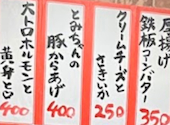 厚揚げ
鉄板アンバター
350
クリームチーズと
さきいか
250
とみちゃんの
豚からあげ
400
大トロホルモンと
黄身と
400